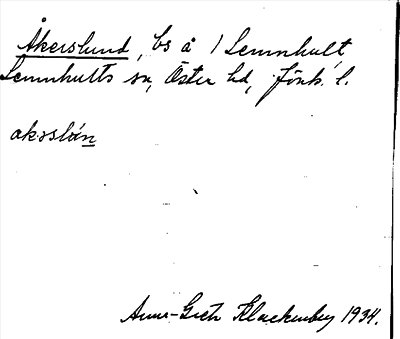 Åkerslund, bs å 1 Lemnhult,
Lemnhults sn, Öster hd, Jönk. l.
Anna-Greta Klackenberg 1934.